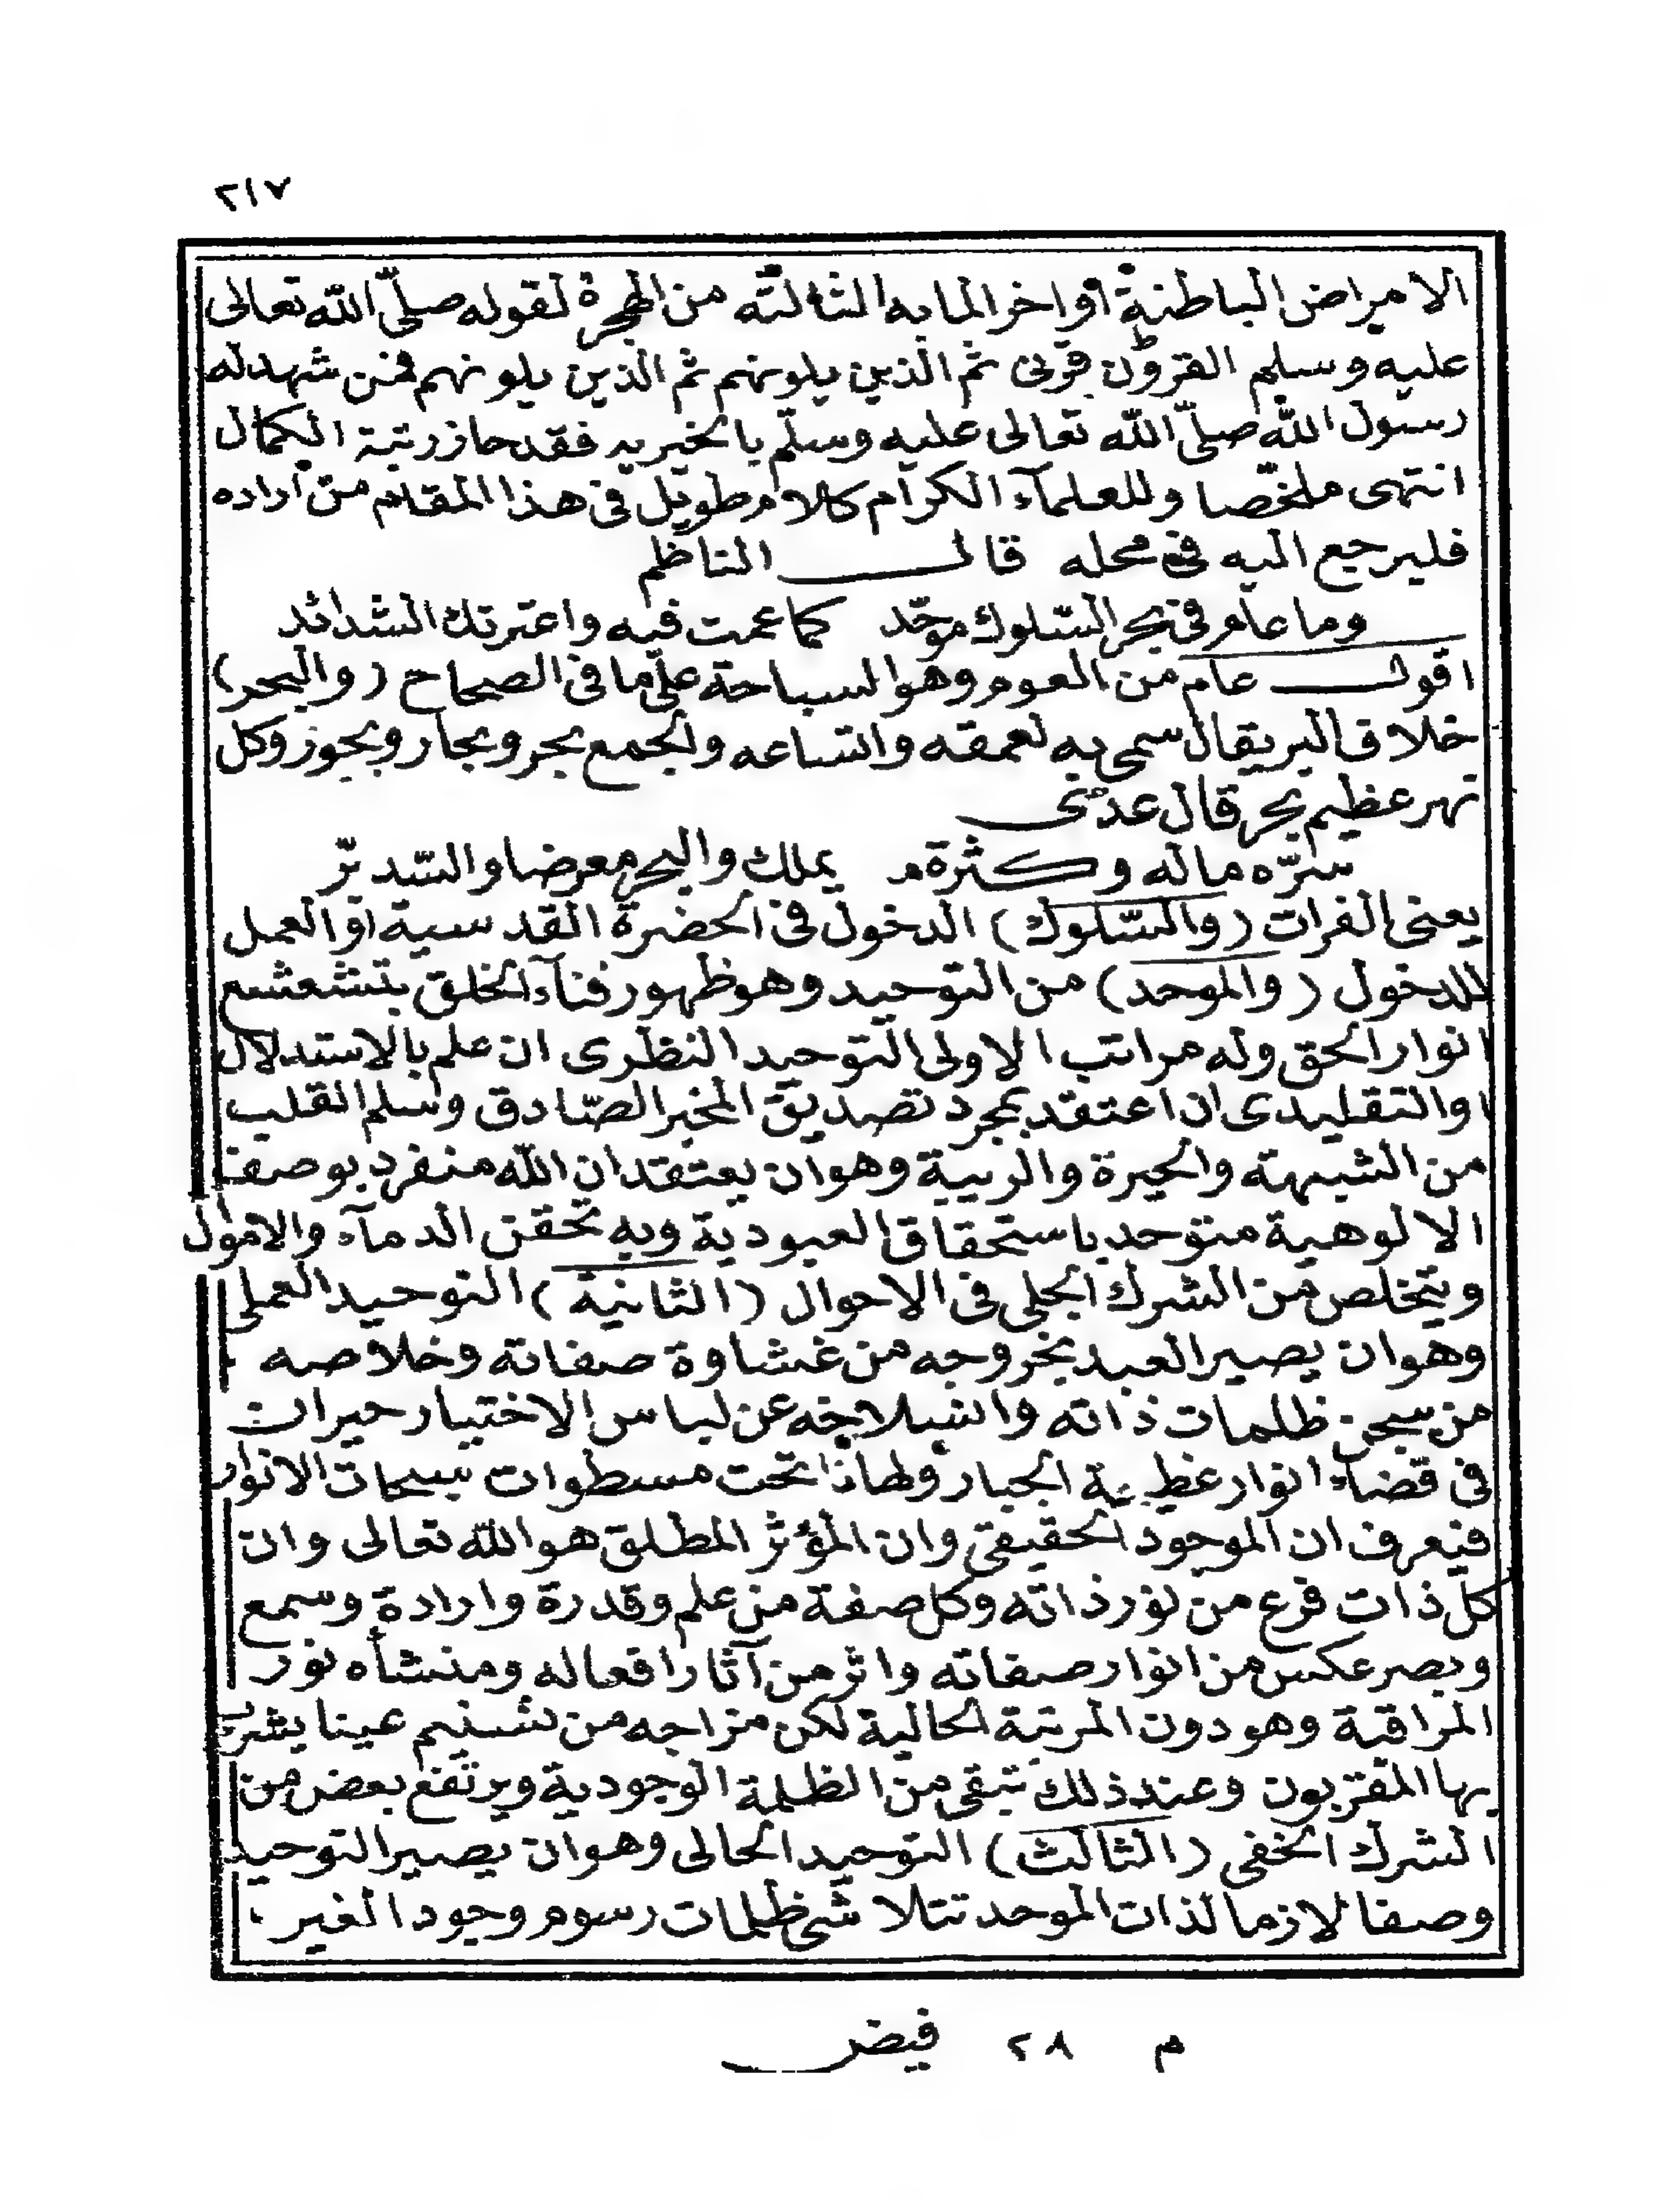 ٢١٧
الامراض الباطنية أواخر المايه الثالثه من الهجرة لقوله صلّى الله تعالى
عليه وسلم القرون قرنى ثم الذين يلونهم ثم الذين يلونهم فمن شهد له
رسول الله صلّى الله تعالى عليه وسلّم بالخيريه فقد حاز رتبة الكمال
انتهى ملخّصا وللعلمآء الكرام كلام طويل فى هذا المقام من أراده
فليرجع اليه فى محله قال الناظم
وما عام فى بحر السّلوك موحّد كما عمت فيه واعترتك الشدائد
اقول عام من العوم وهو السباحة على ما فى الصحاح (والبحر)
خلاف البر يقال سمى به لعمقه واتساعه والجمع بحر وبحار وبحور وكل
نهر عظيم بحر قال عدى
سرّه ماله وكثرة م يملك والبحر معرضا والسّديرّ
يعنى الفرات (والسّلوك) الدخول فى الحضرة القدسية او العمل
للدخول (والموحد) من التوحيد وهو ظهور فنآء الخلق بتشعشع
انوار الحق وله مراتب الاولى التوحيد النظرى ان علم بالاستدلال
او التقليدى ان اعتقد بمجرد تصديق المخبر الصّادق وسلم القلب
من الشبهة والحيرة والريبة وهو ان يعتقد ان الله منفرد بوصف
الالوهية متوحد باستحقاق العبودية وبه تحقن الدمآء والاموال
ويتخلص من الشرك الجلى فى الاحوال (الثانية) التوحيد العملى
وهو ان يصير العبد بخروجه من غشاوة صفاته وخلاصه
من سجن ظلمات ذاته وانسلاخه عن لباس الاختيار حيران
فى قضاء انوار عظمة الجبار ولهاذا تحت مسطوات سبحات الانوار
فيعرف ان الموجود الحقيقى وان المؤثر المطلق هو الله تعالى وان
كل ذات فرع من نور ذاته وكل صفة من علم وقدرة وارادة وسمع
وبصر عكس من انوار صفاته واثر من آثار افعاله ومنشأه نور
المراقبة وهو دون المرتبة الحالية لكن مزاجه من تسنيم عينا يشرب
بها المقربون وعند ذلك تبقى من الظلمة الوجودية ويرتفع بعض من
الشرك الخفى (الثالث) التوحيد الحالى وهو ان يصير التوحيد
وصفا لازما لذات الموحد تتلاشى ظلمات رسوم وجود الغير
م ٢٨ فيض